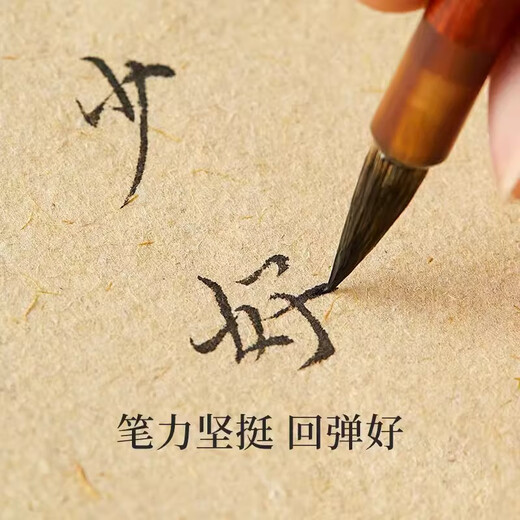 好
笔力坚挺 回弹好